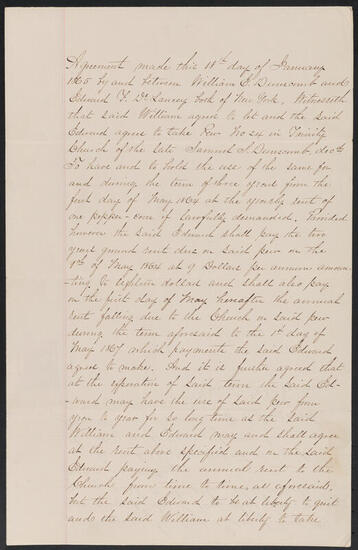 Agreement made this 11th day of January
1865 by and between William E. Dunscomb and
Edward F. De Lancey both of New York. Witnesseth
that said William agrees to let and the said
Edward agrees to take Pew No 24 in Trinity
Church of the late Samuel S. Dunscomb, decd
To have and to hold the use of the same for
and during the term of three years from the
first day of May 1864 at the yearly rent of
one pepper-corn if lawfully demanded. Provided
however the said Edward shall pay the two
years ground rent due on said pew on the
1st of May 1864 at 9 Dollars per annum amoun-
-ting to eighteen dollars and shall also pay
on the first day of May hereafter the annual
rent falling due to the Church on said pew
during the term aforesaid to the 1st day of
May 1867 which payments the said Edward
agrees to make. And it is further agreed that
at the expiration of said term the said Ed-
-ward may have the use of said pew from
year to year for so long time as the said
William and Edward may and shall agree
at the rent above specified and on the said
Edward paying the annual rent to the
Church from time to time, as aforesaid.
but the said Edward to be at liberty to quit
and the said William at liberty to take